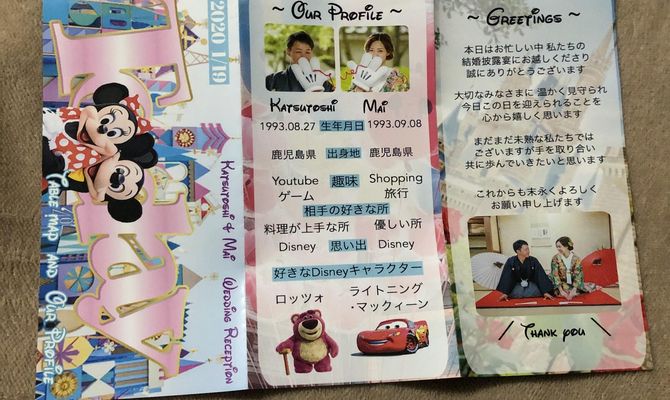 2020 1/19
The Day
Katsutoshi & Mai Wedding Reception
Table Map and Our Profile
~ Our Profile ~
Katsutoshi Mai
1993.08.27 生年月日 1993.09.08
鹿児島県 出身地 鹿児島県
Youtube
ゲーム
趣味
Shopping
旅行
相手の好きな所
料理が上手な所 優しい所
Disney 思い出 Disney
好きなDisneyキャラクター
ロッツォ
ライトニング
・マックィーン
~ Greetings ~
本日はお忙しい中 私たちの
結婚披露宴にお越しくださり
誠にありがとうございます
大切なみなさまに 温かく見守られ
今日この日を迎えられることを
心から嬉しく思います
まだまだ未熟な私たちでは
ございますが手を取り合い
共に歩んでいきたいと思います
これからも末永くよろしく
お願い申し上げます
\ Thank you /